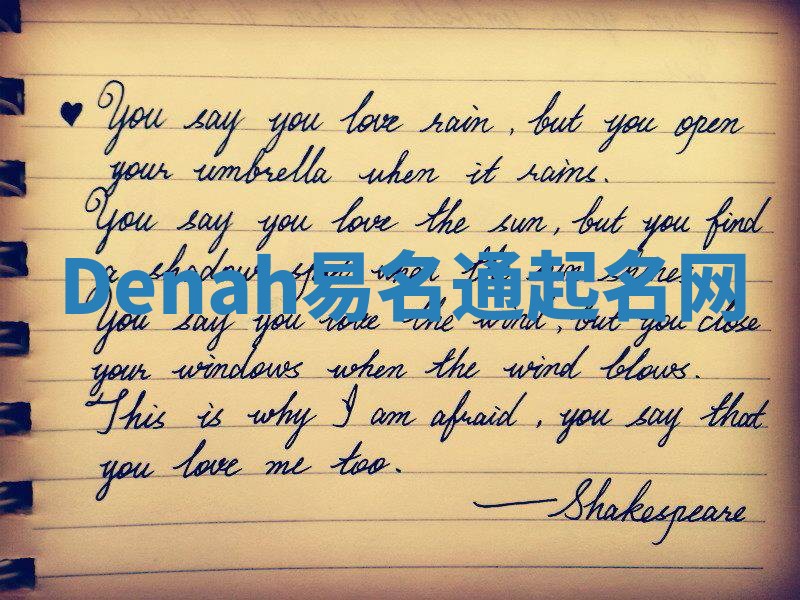 You say you love rain, but you open
your umbrella when it rains.
You say you love the sun, but you find
a shadow spot when the sun shines.
Denah易名通起名网
You say you love the wind, but you close
your windows when the wind blows.
This is why I am afraid, you say that
you love me too.
—Shakespeare